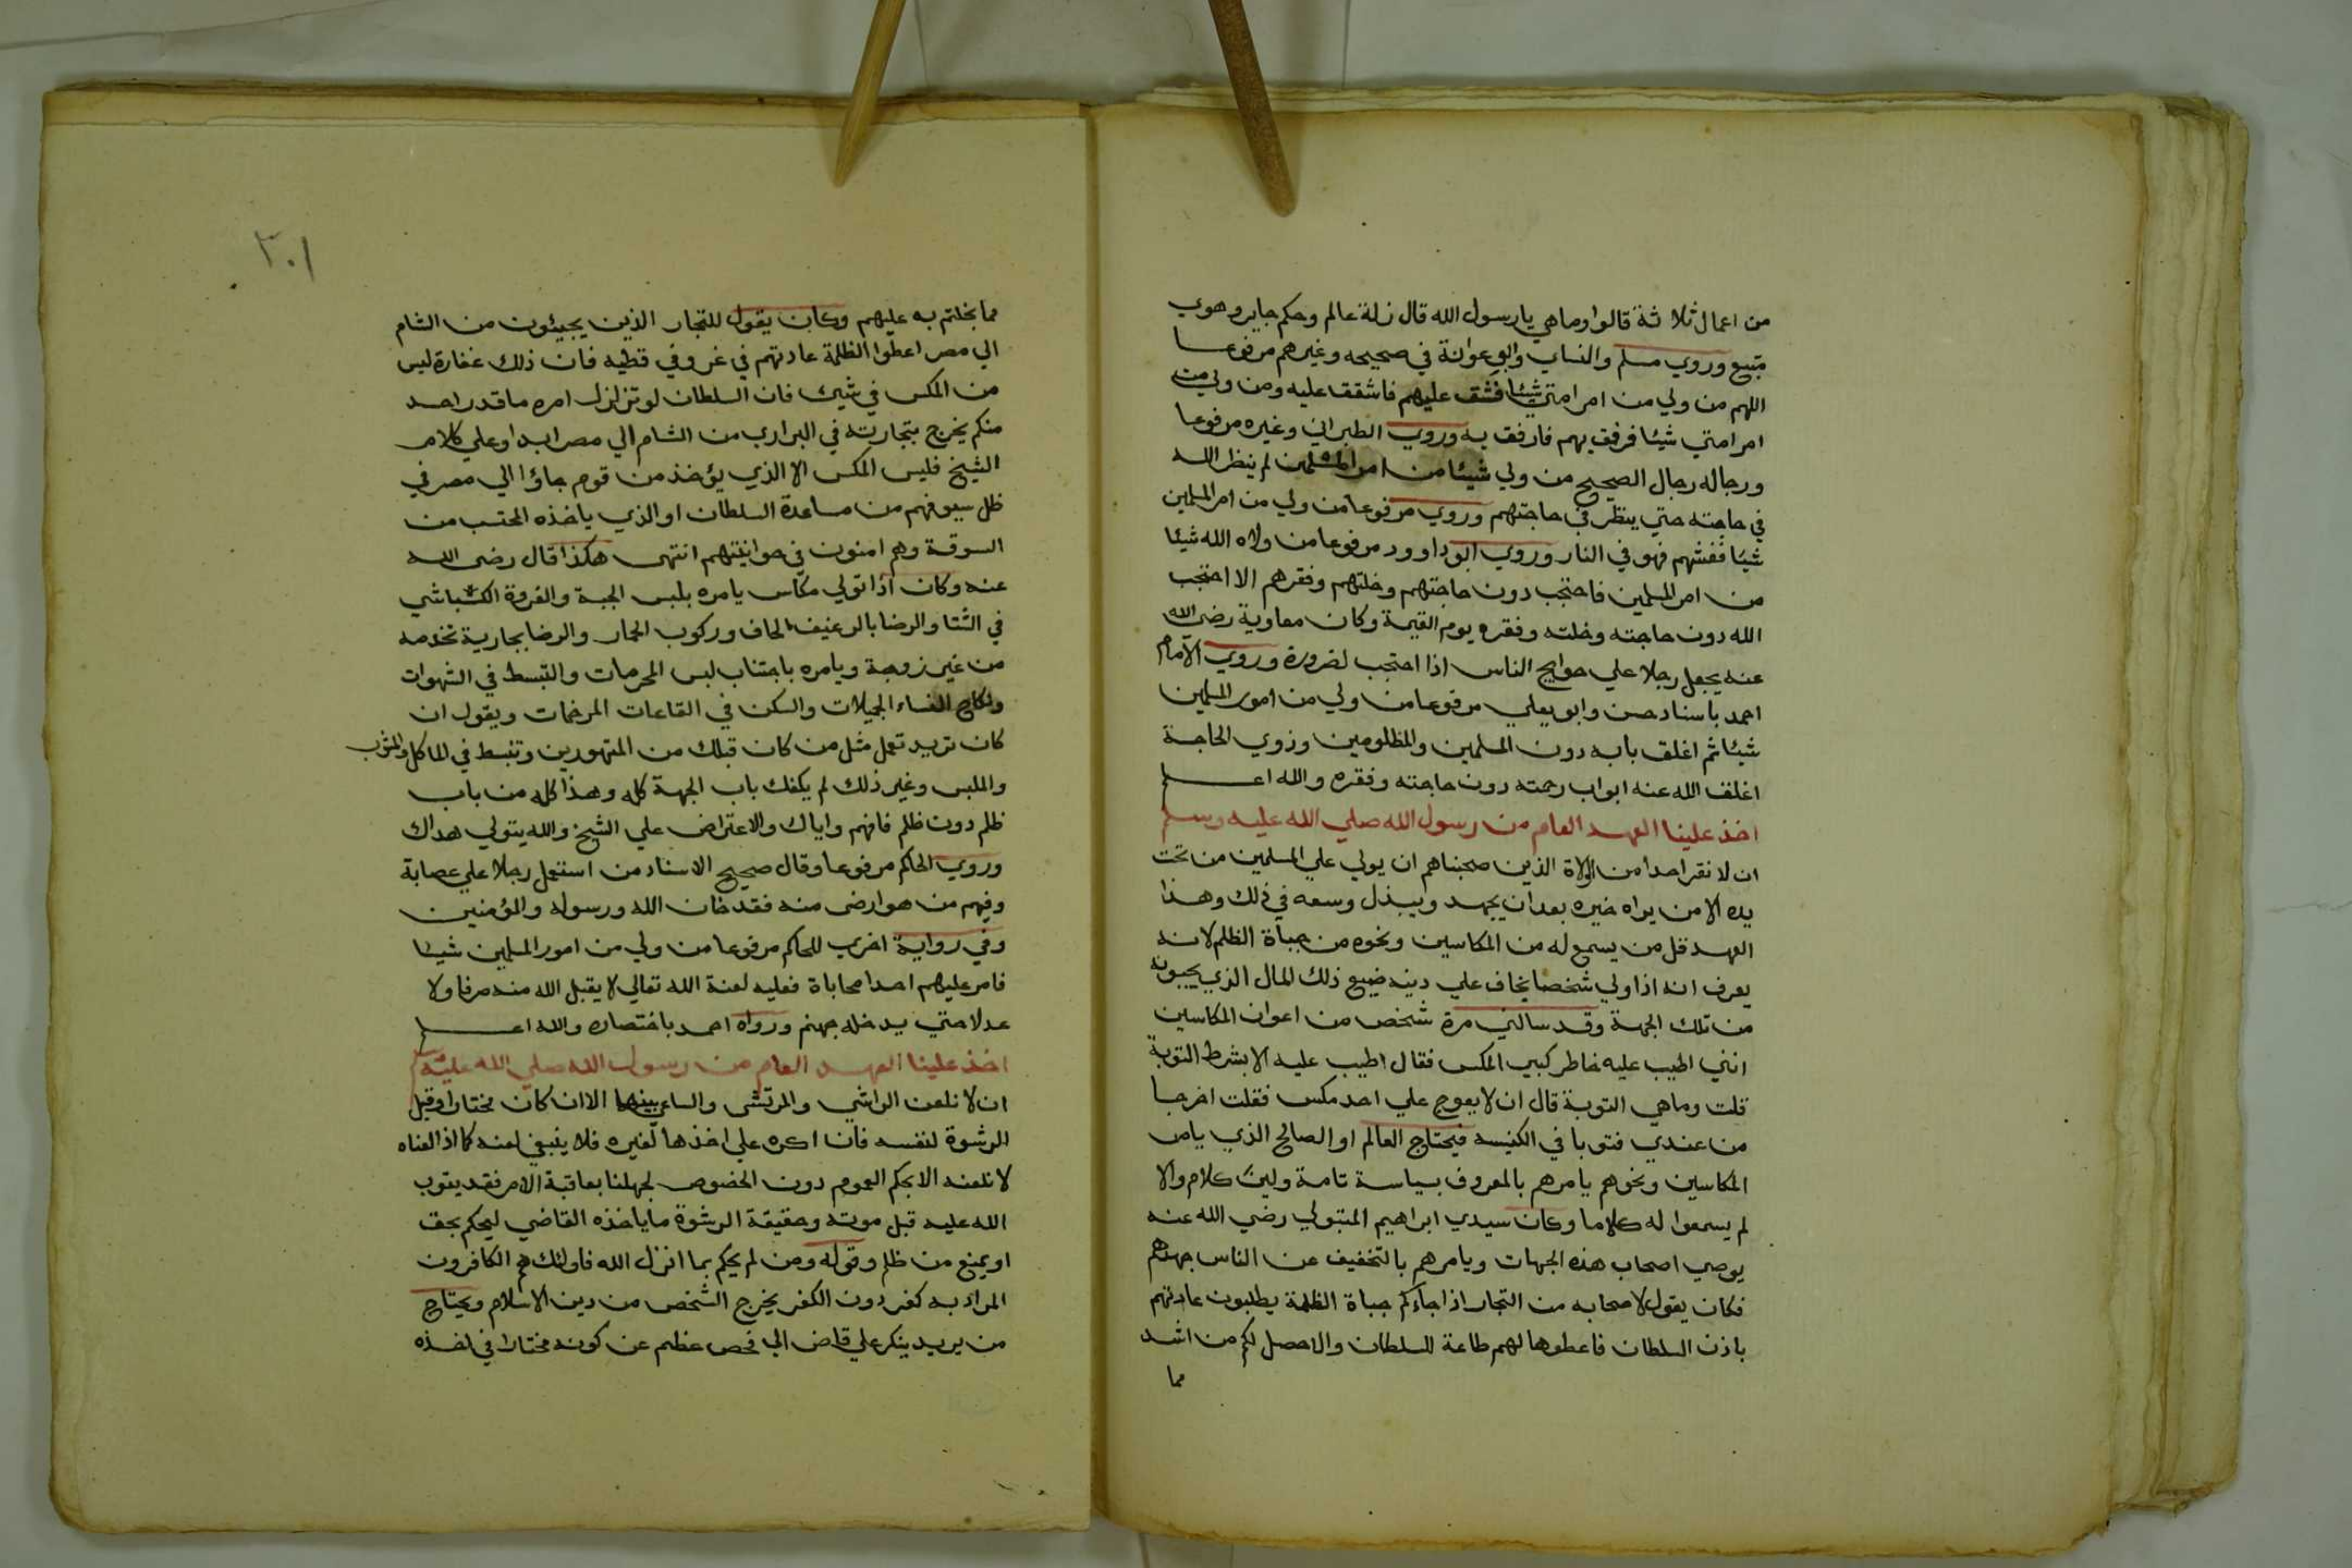 من اعمال ثلاثة قالوا وما هي يا رسول الله قال زلة عالم وحكم جاير وهوي
متبع وروي مسلم والنساي وابو عوانة في صحيحه وغيرهم مرفوعا
اللهم من ولي من امر امتي شيئا فشق عليهم فاشقق عليه ومن ولي من
امر امتي شيئا فرفق بهم فارفق به وروي الطبراني وغيره مرفوعا
ورجاله رجال الصحيح من ولي شيئا من امر المسلمين لم ينظر الله
في حاجته حتي ينظر في حاجتهم وروي مرفوعا من ولي من امر المسلمين
شيئا فغشهم فهو في النار وروي ابو داوود مرفوعا من ولاه الله شيئا
من امر المسلمين فاحتجب دون حاجتهم وخلتهم وفقرهم الا احتجب
الله دون حاجته وخلته وفقره يوم القيمة وكان معاوية رضي الله
عنه يجعل رجلا علي حوايج الناس اذا احتجب لضرورة وروي الامام
احمد باسناد حسن وابو يعلي مرفوعا من ولي من امور المسلمين
شيئا ثم اغلق بابه دون المسلمين والمظلومين وذوي الحاجة
اغلق الله عنه ابواب رحمته دون حاجته وفقره والله اعلم
اخذ علينا العهد العام من رسول الله صلي الله عليه وسلم
ان لا نقر احدا من الولاة الذين صحبناهم ان يولي علي المسلمين من تحت
يده الا من يراه خيره بعد ان يجهد ويبذل وسعه في ذلك وهذا
العهد قل من يسمع له من المكاسين ونحوه من جباة الظلم لانه
يعرف انه اذا ولي شخصا يخاف علي دينه ضيع ذلك المال الذي يجبونه
من تلك الجهة وقد سالني مرة شخص من اعوان المكاسين
انني اطيب عليه خاطر كبير المكس فقال اطيب عليه الا بشرط التوبة
قلت وما هي التوبة قال ان لا يعوج علي احد مكس فقلت اخرجا
من عندي فتوبا في الكنيسه فيحتاج العالم او الصالح الذي يامر
المكاسين ونحوهم يامرهم بالمعروف بسياسة تامة ولين كلام والا
لم يسمعوا له كلاما وكان سيدي ابراهيم المتبولي رضي الله عنه
يوصي اصحاب هذه الجهات ويامرهم بالتخفيف عن الناس جهدهم
فكان يقول لاصحابه من التجار اذا جاءكم جباة الظلمة يطلبون عادتهم
باذن السلطان فاعطوها لهم طاعة للسلطان والا حصل لكم من اشد
مما
٣٠١
مما بخلتم به عليهم وكان يقول للتجار الذين يجيئون من الشام
الي مصر اعطوا الظلمة عادتهم في غز وفي قطيه فان ذلك غفارة ليس
من المكس في شيئ فان السلطان لو تزلزل امره ما قدر احد
منكم يخرج بتجارته في البراري من الشام الي مصر ابدا وعلي كلام
الشيخ فليس المكس الا الذي يؤخذ من قوم جاؤا الي مصر في
ظل سيوفهم من مساعدة السلطان او الذي ياخذه المحتسب من
السوقة وهم امنون في حوانيتهم انتهي هكذا قال رضي الله
عنه وكان اذا تولي مكاس يامره بلبس الجبة والفروة الكباشي
في الشتا والرضا بالرغيف الحاف وركوب الحمار والرضا بجارية تخدمه
من غير زوجة ويامره باجتناب لبس المحرمات والتبسط في الشهوات
ونكاح النساء الجميلات والسكن في القاعات المرخمات ويقول ان
كان تريد تعمل مثل من كان قبلك من المتهورين وتنبسط في الماكل والمشرب
والملبس وغير ذلك لم يكفك باب الجهة كله وهذا كله من باب
ظلم دون ظلم فافهم واياك والاعتراض علي الشيخ والله يتولي هداك
وروي الحاكم مرفوعا وقال صحيح الاسناد من استعمل رجلا علي عصابة
وفيهم من هو ارضي منه فقد خان الله ورسوله والمؤمنين
وفي رواية اخري للحاكم مرفوعا من ولي من امور المسلمين شيئا
فامر عليهم احدا محاباة فعليه لعنة الله تعالي لا يقبل الله منه صرفا ولا
عدلا حتي يدخله جهنم ورواه احمد باختصار والله اعلم
اخذ علينا العهد العام من رسول الله صلي الله عليه وسلم
ان لا نلعن الراشي والمرتشي والساعي بينهما الا ان كان مختارا وقبل
الرشوة لنفسه فان اكره علي اخذها لغيره فلا ينبغي لعنه كما اذا لعناه
لا نلعنه الا بحكم العموم دون الخصوص لجهلنا بعاقبة الامر فقد يتوب
الله عليه قبل موته وحقيقة الرشوة ما ياخذه القاضي ليحكم بحق
او يمنع من ظلم وقوله ومن لم يحكم بما انزل الله فاولئك هم الكافرون
المراد به كفر دون الكفر يخرج الشخص من دين الاسلام ويحتاج
من يريد ينكر علي قاض الي فحص عظيم عن كونه مختارا في اخذه